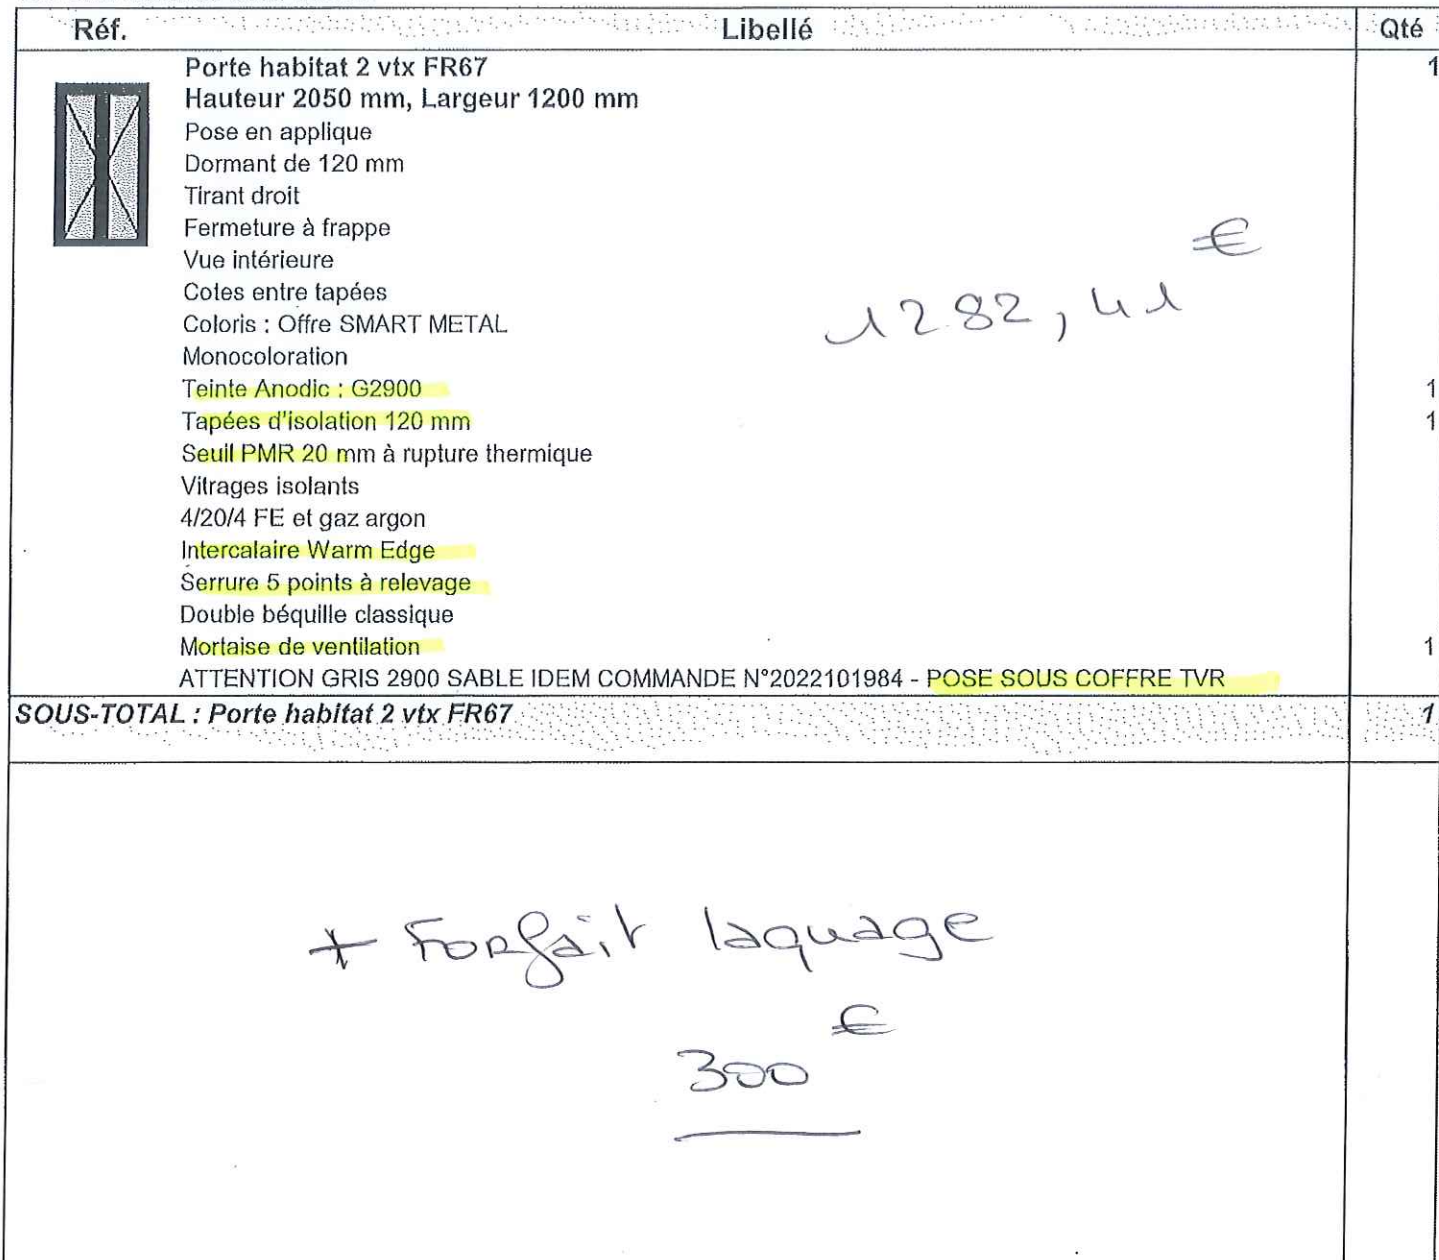 Réf. Libellé Qté
Porte habitat 2 vtx FR67 1
Hauteur 2050 mm, Largeur 1200 mm
Pose en applique
Dormant de 120 mm
Tirant droit
Fermeture à frappe
€
Vue intérieure
Cotes entre tapées
1282,41
Coloris : Offre SMART METAL
Monocoloration
Teinte Anodic : G2900 1
Tapées d'isolation 120 mm 1
Seuil PMR 20 mm à rupture thermique
Vitrages isolants
4/20/4 FE et gaz argon
Intercalaire Warm Edge
Serrure 5 points à relevage
Double béquille classique
Mortaise de ventilation 1
ATTENTION GRIS 2900 SABLE IDEM COMMANDE N°2022101984 - POSE SOUS COFFRE TVR
SOUS-TOTAL : Porte habitat 2 vtx FR67 1
+ Forfait laquage
€
300